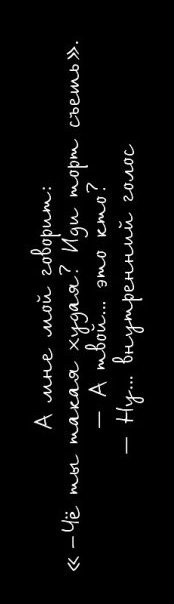 А мне мой говорит:
« –Чё ты такая худая? Иди торт съешь».
– А твой... это кто?
– Ну... внутренний голос